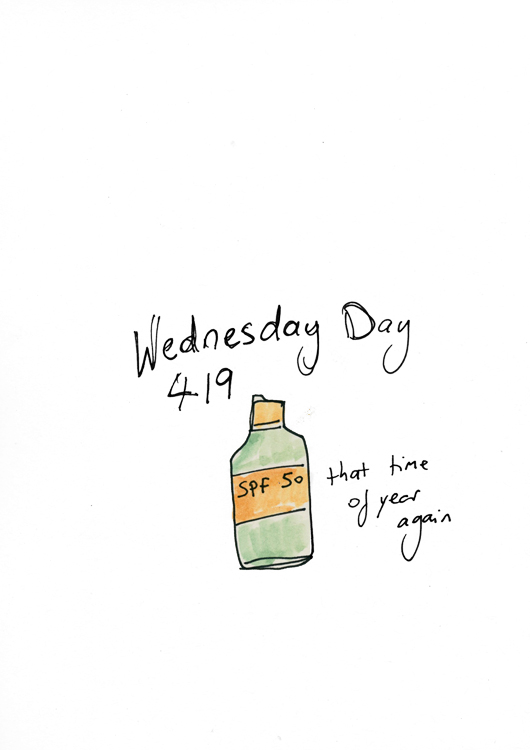 Wednesday Day
419
SPF 50
that time
of year
again